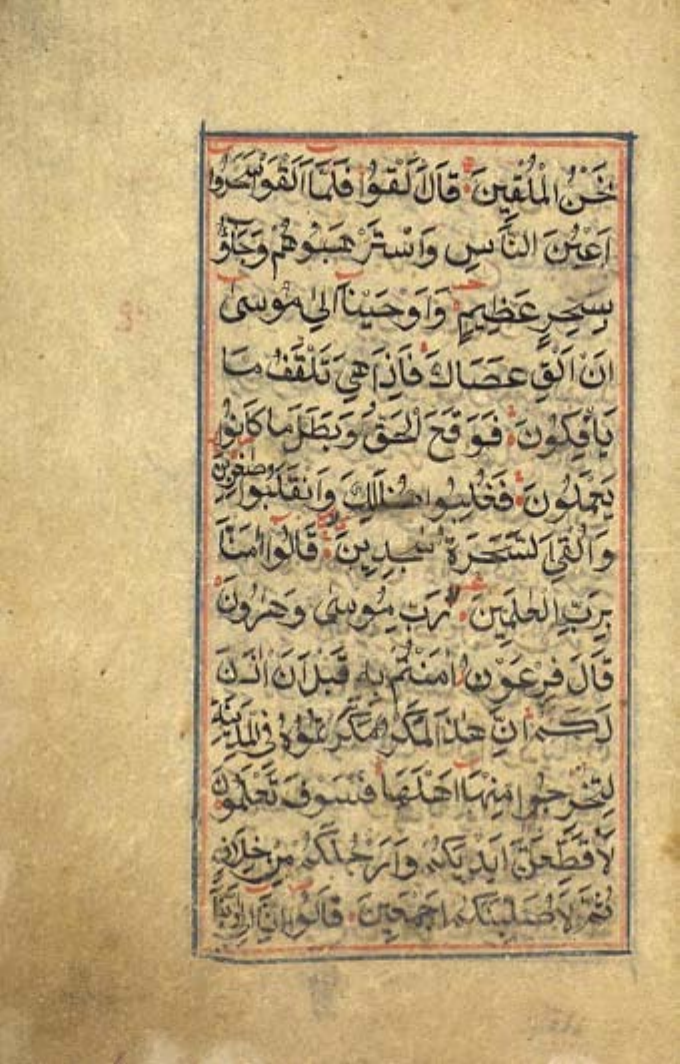 نَحْنُ الْمُلْقِينَ قَالَ اَلْقُوا فَلَمَّا اَلْقَوْا سَحَرُوا
اَعْيُنَ النَّاسِ وَاسْتَرْهَبُوهُمْ وَجَاؤُ
بِسِحْرٍ عَظِيمٍ وَاَوْحَيْنَا اِلٰى مُوسٰى
اَنْ اَلْقِ عَصَاكَ فَاِذَا هِىَ تَلْقَفُ مَا
يَاْفِكُونَ فَوَقَعَ الْحَقُّ وَبَطَلَ مَا كَانُوا
يَعْمَلُونَ فَغُلِبُوا هُنَالِكَ وَانْقَلَبُوا صٰغِرِينَ
وَاُلْقِىَ السَّحَرَةُ سٰجِدِينَ قَالُوا اٰمَنَّا
بِرَبِّ الْعٰلَمِينَ رَبِّ مُوسٰى وَهٰرُونَ
قَالَ فِرْعَوْنُ اٰمَنْتُمْ بِهٖ قَبْلَ اَنْ اٰذَنَ
لَكُمْ اِنَّ هٰذَا لَمَكْرٌ مَكَرْتُمُوهُ فِى الْمَدِينَةِ
لِتُخْرِجُوا مِنْهَا اَهْلَهَا فَسَوْفَ تَعْلَمُونَ
لَاُقَطِّعَنَّ اَيْدِيَكُمْ وَاَرْجُلَكُمْ مِنْ خِلَافٍ
ثُمَّ لَاُصَلِّبَنَّكُمْ اَجْمَعِينَ قَالُوا اِنَّا اِلٰى رَبِّنَا